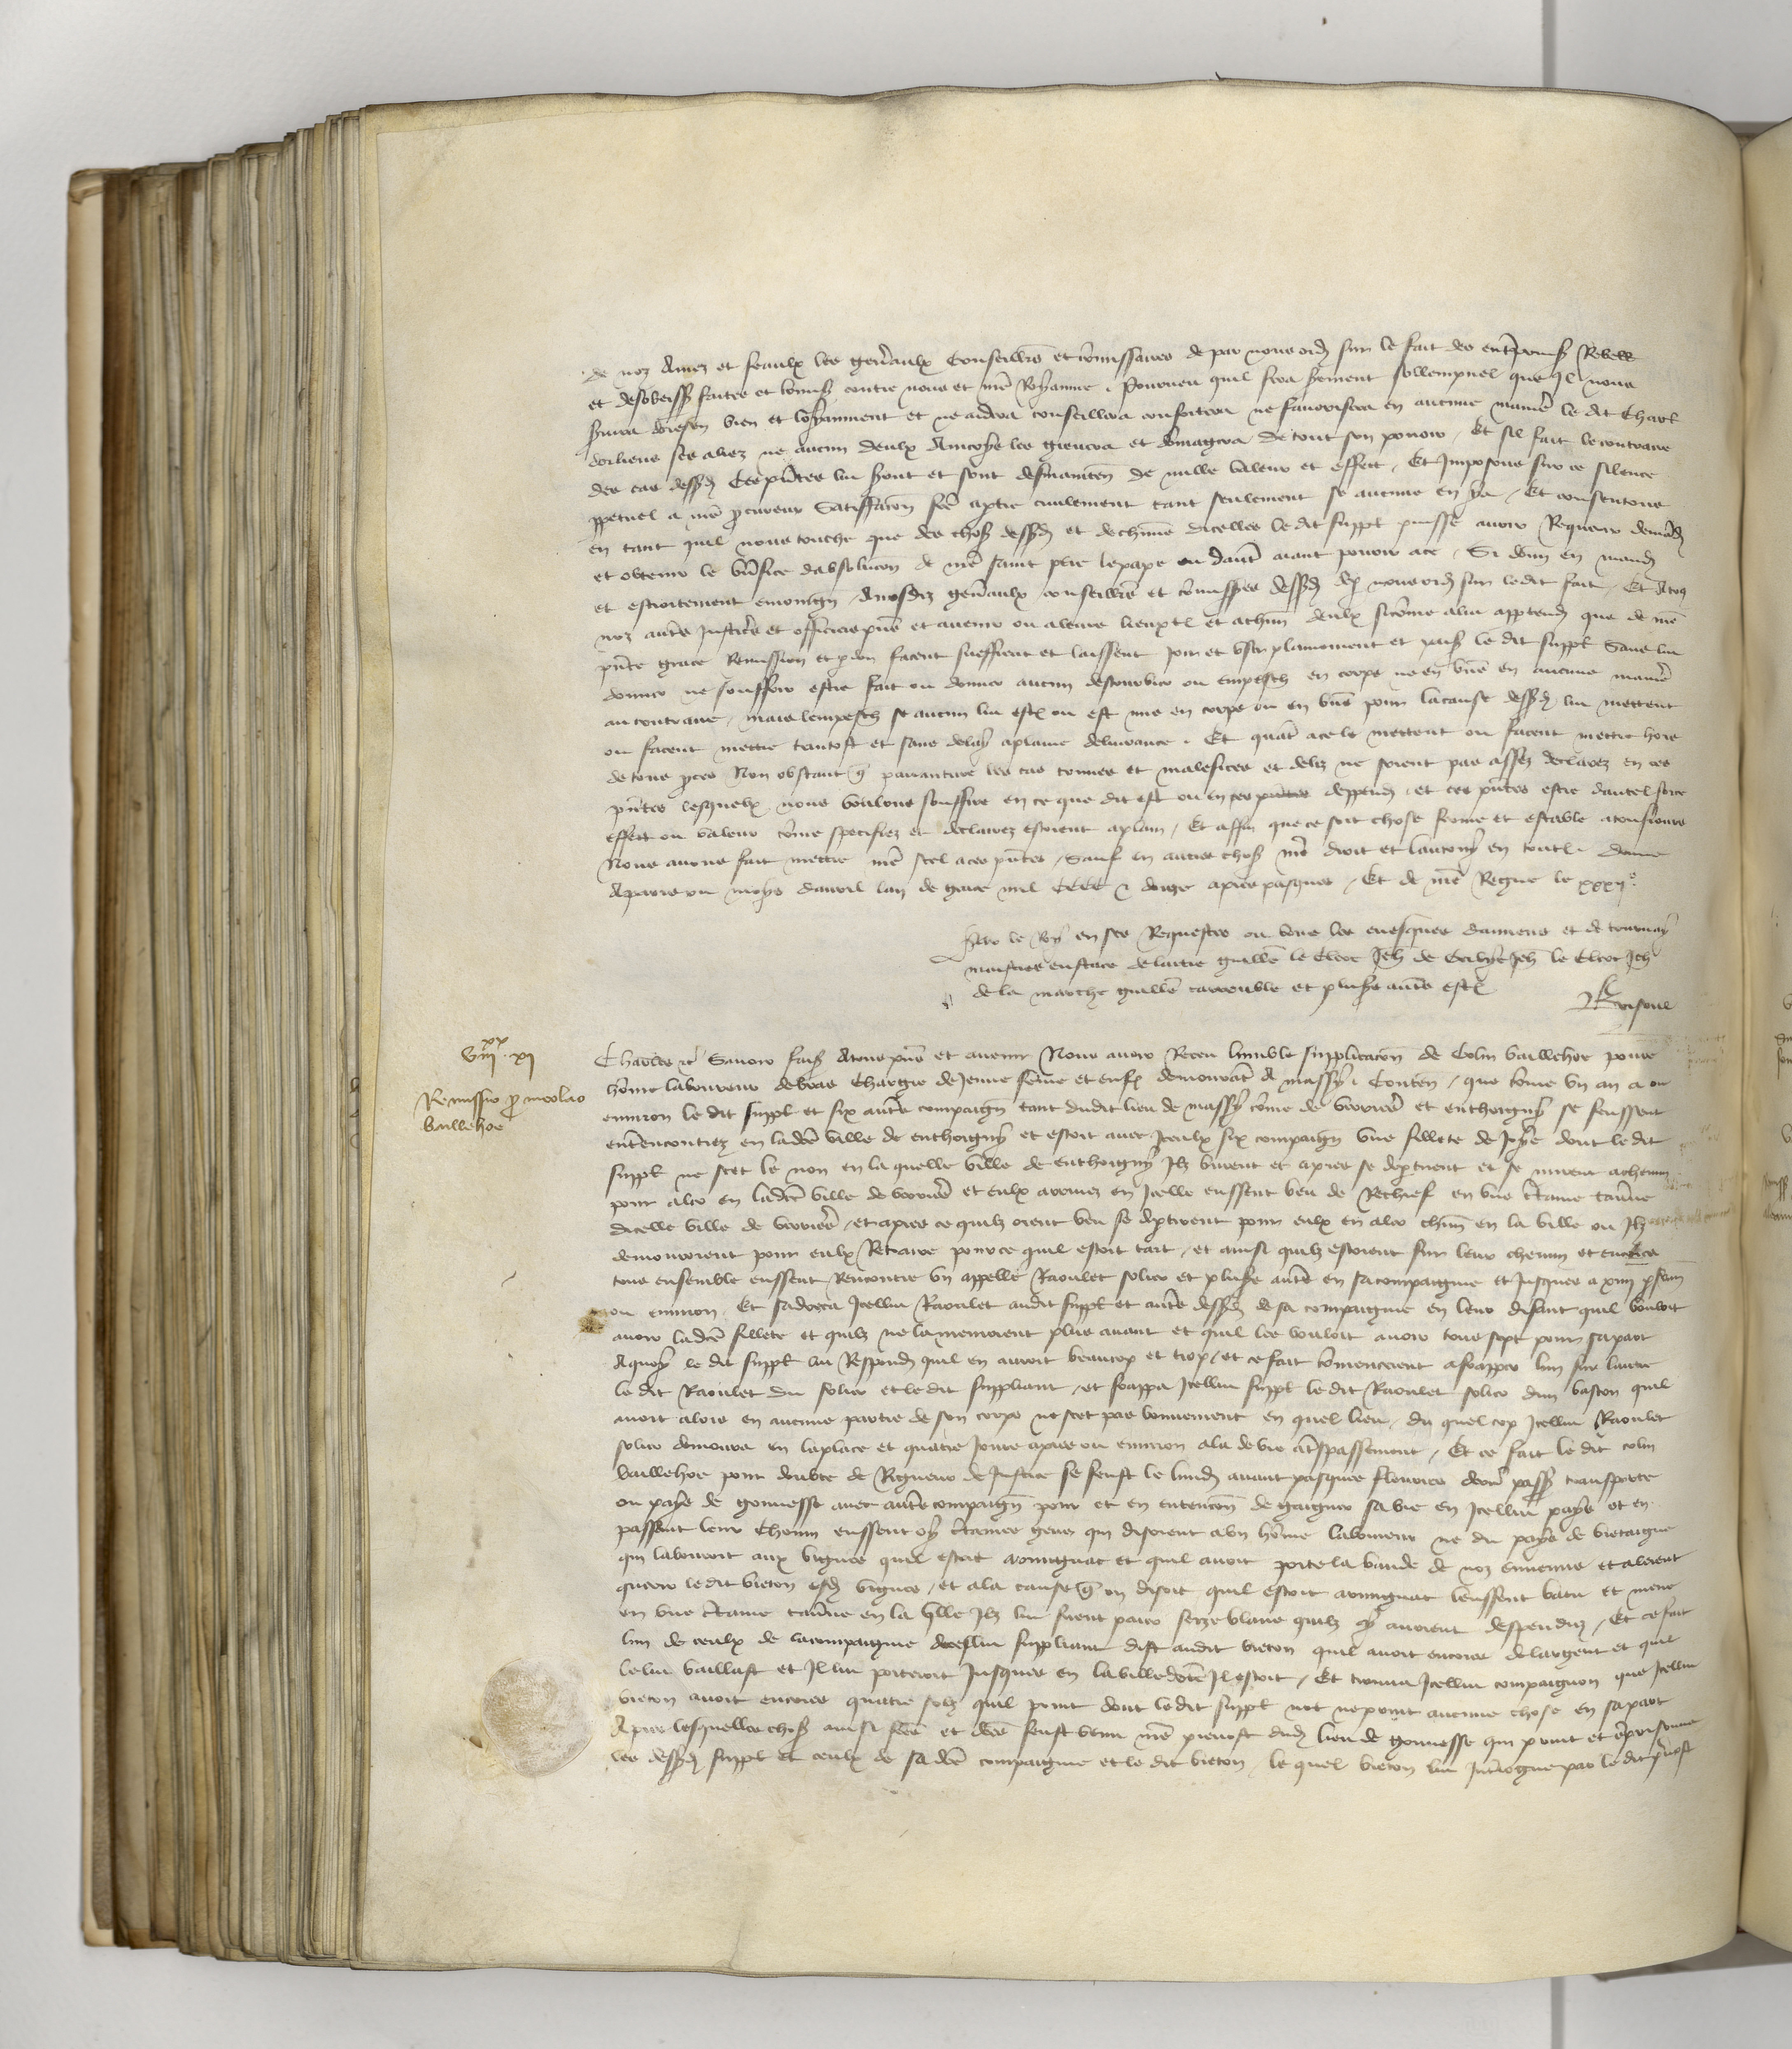 de noz amez et feaulx les gen̄aulx Conseillr̄s et cōmissaires de par nous ord sur le fait des ent͠pris Rebell
et desobeiss faites et cōmis contre nous et nr̄e Royaume . Pourveu quil fera serment sollempnel que il nous
servira doresen bien et loyaument et ne aidera conseillera confortera ne favorisera en aucune manīe le dit Charl
dorliens ses aliez ne aucun deulx Aincoys les grevera et dōmagera de tout son povoir / Et sil fait le contraire
des cas dessd Ces pn̄tes lui seront et sont de nulle valeur et effect / Et Imposons sur ce silence
ppetuel a nr̄e procureur Satisfacōn fcē a ptie civilement tant seulement se aucune en y a / Et consentons
en tant quil nous touche que des choses dessd et de chūne dicelles le dit suppl puisse avoir Requerir demāder
et obtenir le bn̄fice dabsolucōn de nr̄e saint pēre le pape ou dautre aiant povoir ace / Si donn en mand
et estroitement enjoingn A nosdiz gen̄aulx conseillr̄s et cōmissres dessd de p nous ord sur ledit fait / Et a tous
noz autr̄s Justicīers et officiers pn̄s et avenir ou a leurs lieuxten et a chūn deulx si cōme a lui apptend que de nr̄e
pn̄te grace Remission et pdon facent sueffrent et laissent Joir et user plainement et paisib le dit suppl Sans lui
donner ne souffrir estre fait ou donner aucun destourbier ou empesch en corps ne en biēs en aucune manīe
au contraire / mais lempesch se aucun lui estoit ou est mis en corps ou en biēs pour la cause dessd lui mettent
ou facent mettre tantost et sans delay a plaine delivrance . Et quāt ace le mettent ou facent mettre hors
de tous proces Non obstant q̄ paravanture les cas crimes et malefices et deliz ne soient pas assez declarez en ces
pn̄tes lesquelx nous voulons souffire en ce que dit est ou en ces pn̄tes deppend / et ces pn̄tes estre dautel force
effect ou valeur cōme specifiez et declairez estoient a plain / Et affin que ce soit chose ferme et estable a tousiours
Nous avons fait mettre nr̄e scel a ces pn̄tes / Sauf en autres choses nr̄e droit et lautruy en toutes . Donne
A paris ou moys davril lan de grace mil CCCC &amp; douze apres pasques / Et de nr̄e Regne le xxxij e
Par le Roy en ses Requestes ou vous les evesques damiens et de tournay
maistres eustace de laitre guillē le Clerc Jeh de Jeh le Clerc Jeh
de la marche guillē carrouble et plusrs autr̄s estoient
viij xx xj
Remissio p nicolao
Vaillehoe
Charles etc Savoir faisons A tous pn̄s et avenir Nous avoir Receu lumble supplicacōn de Colin Vaillehoe povre
hōme laboureur de bras Chargie de Jeune fēme et enfans demourāt a massy . Conten / que cōme un an a ou
environ le dit suppl et six autr̄s compaign tant dudit lieu de massy cōme de verrier̄s et enthoigny se feussent
ent̄encontrez en ladcē ville de enthoigny et estoit avec Iceulx six compaign une fillete de Joye dont le dit
suppl ne scet le nom en la quelle ville de enthoigny Ilz burent et apres se dptirent et se mirent achemin
pour aler en ladcē ville de verrier̄s et eulx arrivez en Icelle eussent beu de Rechief en une cr̄taine tavr̄ne
dicelle ville de verrier̄s / et apres ce quilz orent beu se dptirent pour eulx en aler chūn en la ville ou Ilz
demouroient pour eulx Retraire pour ce quil estoit tart / et ainsi quilz estoient sur leur chemin et encores
tous ensemble eussent Rencontre un appelle Raoulet solier et plusrs autr̄s en sa compaignie et Jusques a xiiij psōnn
ou environ . Et sadreca Icellui Raoulet audit suppl et autr̄s dessd de sa compaignie en leur disant quil vouloit
avoir ladcē fillete et quilz ne lemmenroient plus avant et quil les vouloit avoir tous sept pour sa part
Aquoy le dit suppl lui Respondi quil en auroit beaucop et trop / et ce fait cōmencerent a frapper lun sur lautre
le dit Raoulet du solier et le dit suppliant / et frappa Icellui suppl le dit Raoulet solier dun baston quil
avoit alors en aucune partie de son corps ne scet pas bonnement en quel lieu / du quel cop Icellui Raoulet
solier demoura en la place et quatre Jours apres ou environ ala de vie a t͠spassement / Et ce fait le dit colin
Vaillehoe pour doubte de Rigueur de Justice se feust le lundi avant pasques flouries derr̄ passe transporte
ou pays de gonnesse avec autr̄s compaign pour et en entencōn de gaigner sa vie en Icellui pays et en
passant leur chemin eussent oy cr̄taines gens qui disoient a un hōme laboureur ne du pays de bretaigne
qui labouroit aux vignes quil estoit armignac et quil avoit porte la bande de noz ennemis et alerent
querir ledit breton esd vignes / et a la cause q̄ on disoit quil estoit armignac leussent batu et mene
en une cr̄taine tavr̄ne en la qlle Ilz lui firent paier seize blans quilz y avoient despenduz / Et ce fait
lun de ceulx de la compaignie dicellui suppliant dist audit breton quil avoit encores de largent et quil
le lui baillast et Il lui porteroit Jusques en la ville dont Il estoit / Et trouva Icellui compaignon que Icellui
breton avoit encores quatre solz quil print dont ledit suppl not ne print aucune chose en sa part
Apres lesquelles choses ainsi fcēs et dcēs feust venu nr̄e prevost dud lieu de gonnesse qui print et emprisonna
les dessd suppl et ceulx de sa dcē compaignie et le dit breton / le quel breton lui Int͠rogue par le dit prevost